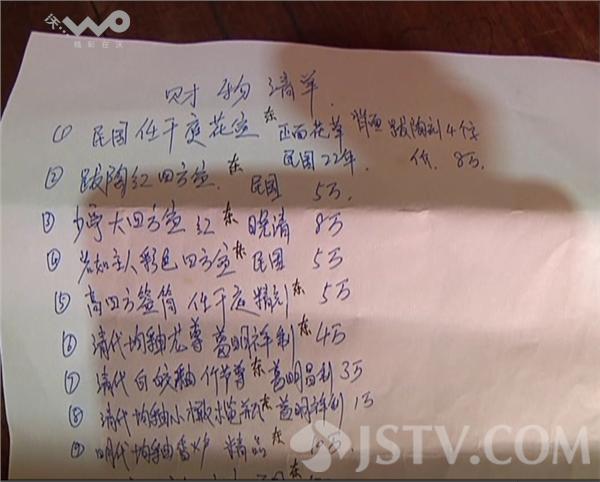 沃…
精彩在沃
财物清单
① 民国任干庭花盆 东 正面花草 背面 跋陶刻4个字
民国22年. 代. 8万.
② 跋陶红四方盆. 东 民国 5万.
③ 少亭大四方盆 红 东 晚清 8万
④ 岩如主人彩色四方盆 东 民国 5万
⑤ 高四方签筒 任干庭精刻 东 5万
⑥ 清代均釉花尊 葛明祥制 东 4万
⑦ 清代白纹釉竹节尊 东 葛明昌制 3万
⑧ 清代均釉小橄榄瓶 东 葛明祥制 1万
⑨ 明代均釉香炉 精品 东 万.
JSTV.COM